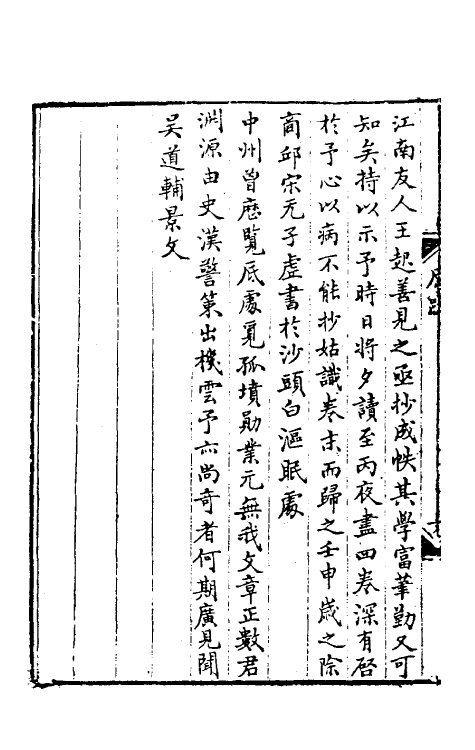 江南友人王起善見之亟抄成帙其學富筆勤又可
知矣持以示予時日將夕讀至丙夜盡四卷深有啓
於予心以病不能抄姑識卷末而歸之壬申歲之除
商邱宋无子虛書於沙頭白漚眠處
中州曾歷覽底處覓孤墳勛業元無我文章正數君
淵源由史漢警策出機雲予亦尚奇者何期廣見聞
吴道輔景文